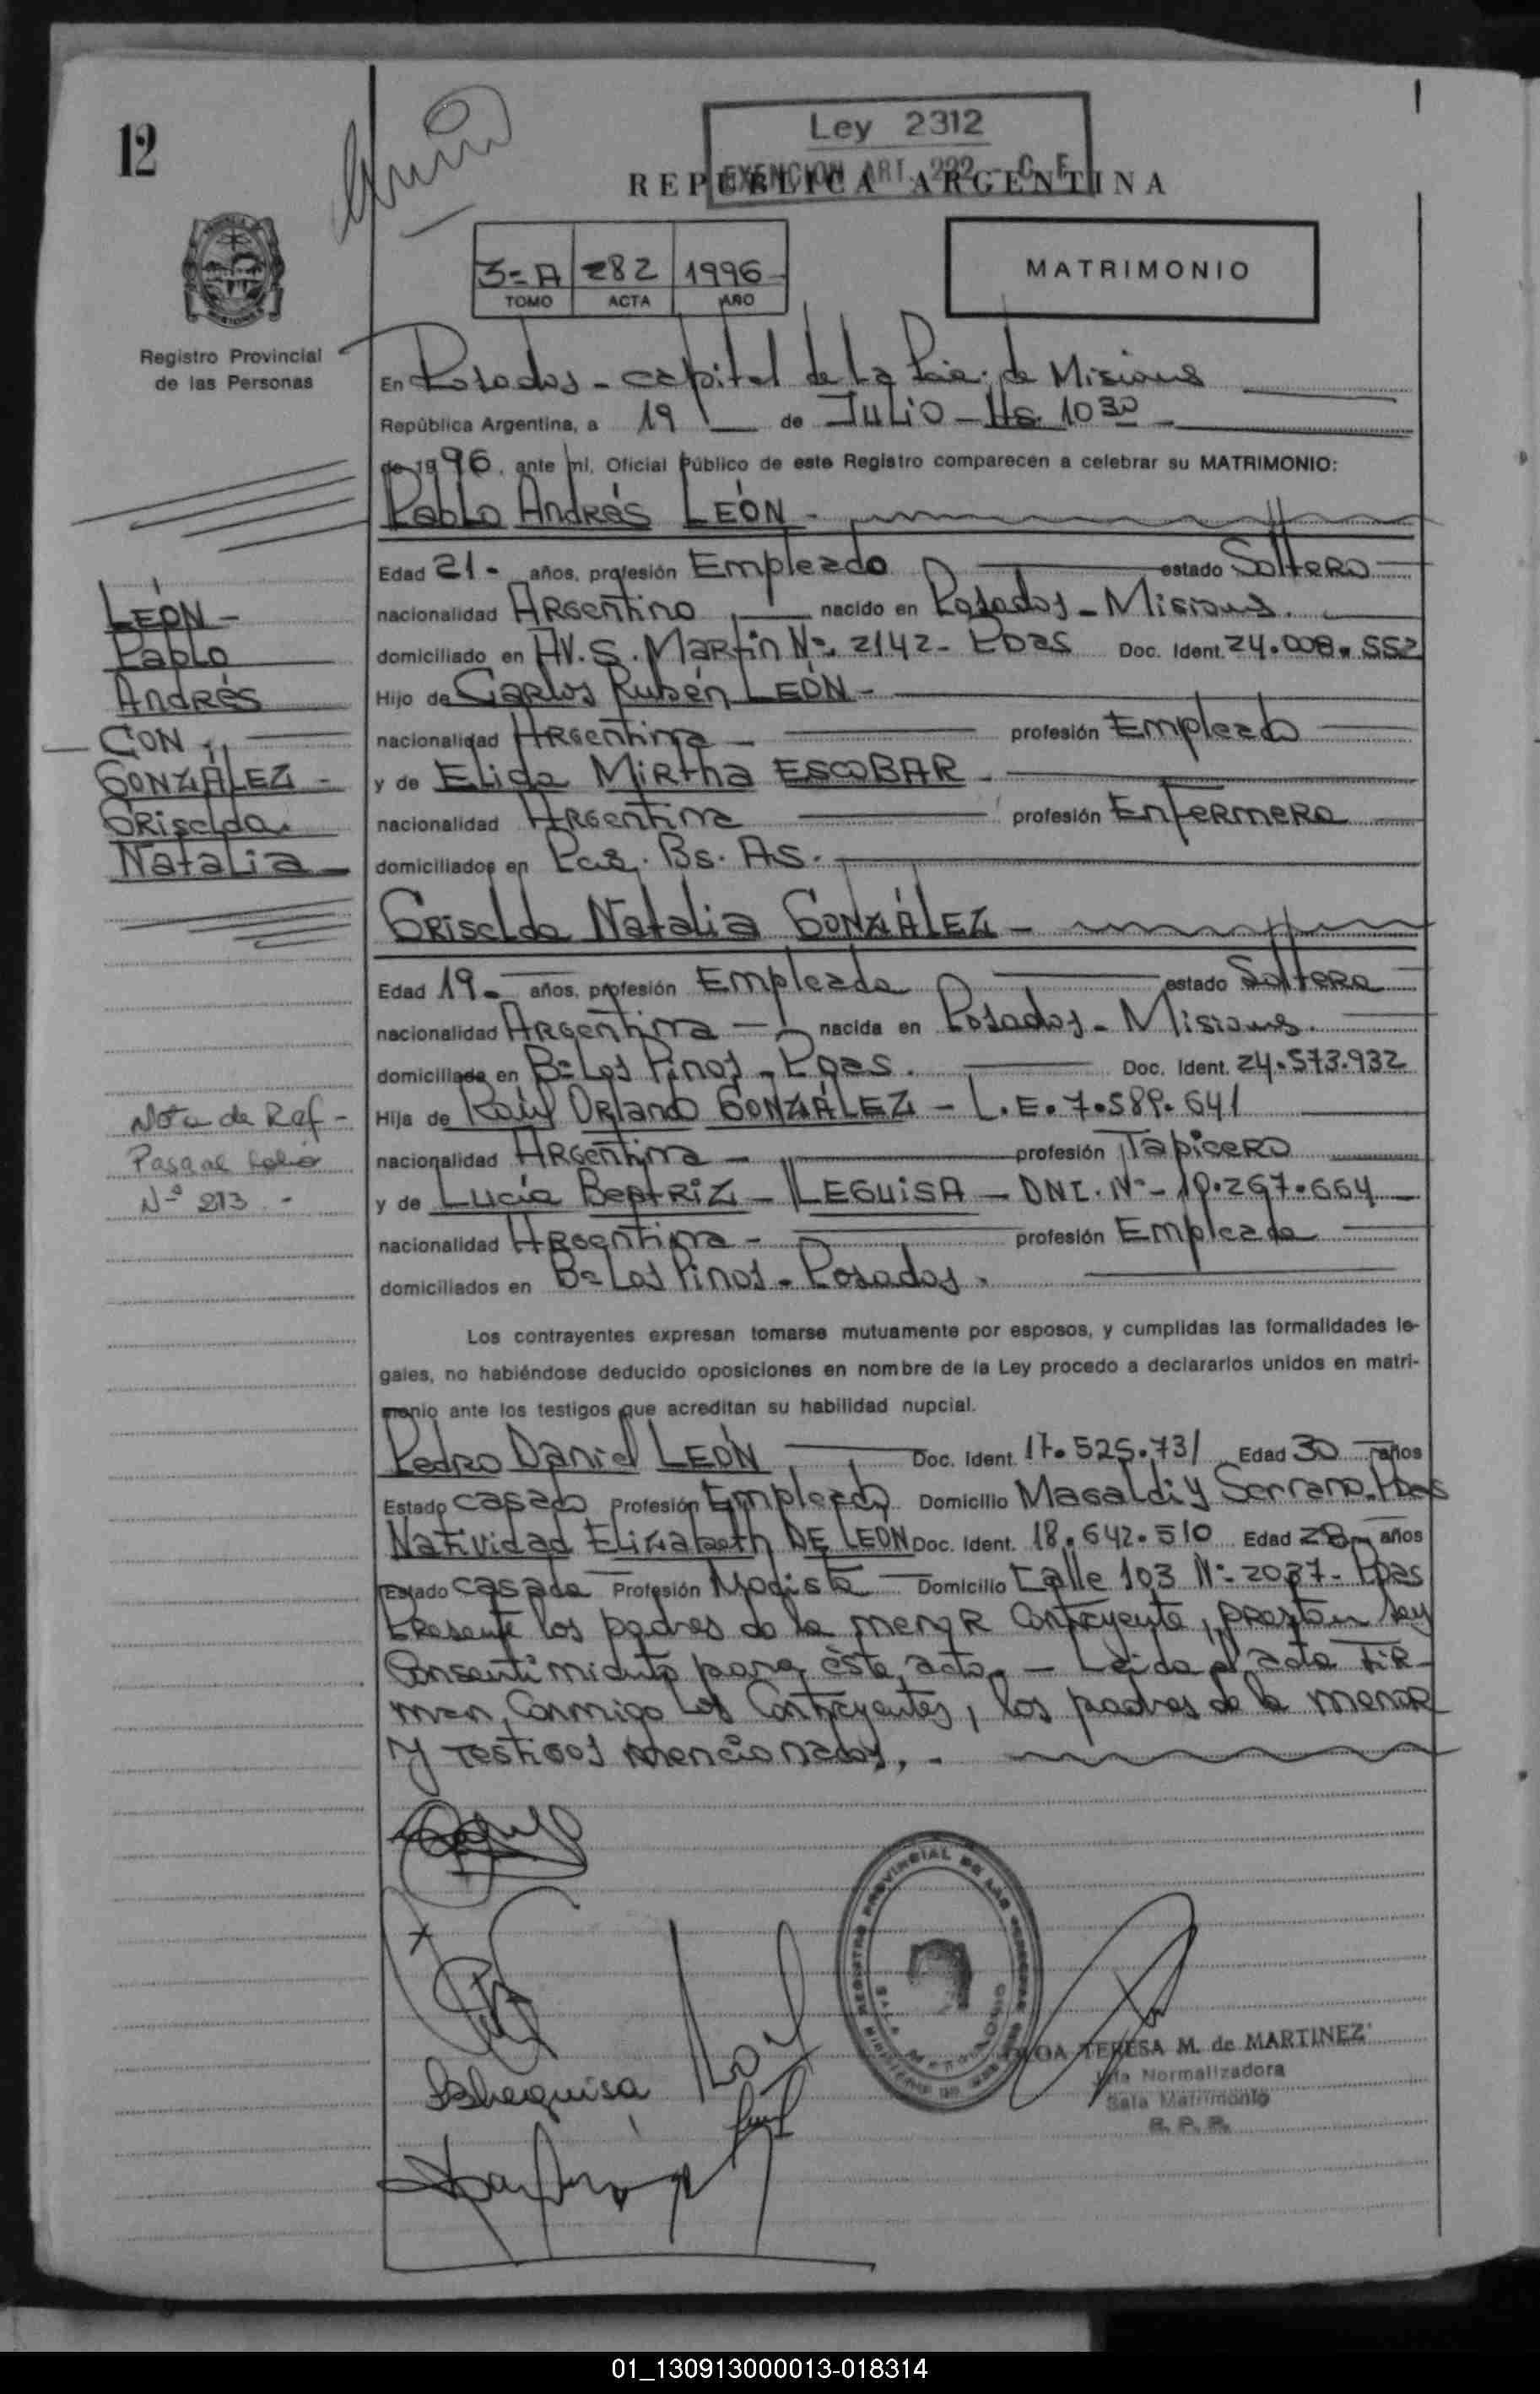 12
Ley 2312
EXENCION ART. 222 - C. F.
REPUBLICA ARGENTINA
3=A 282 1996
TOMO ACTA AÑO
MATRIMONIO
Registro Provincial
de las Personas
En Posadas - capital de La Pcia. de Misiones
República Argentina, a 19 de Julio - Hs. 10 30
de 1996, ante mí, Oficial Público de este Registro comparecen a celebrar su MATRIMONIO:
Pablo Andrés LEÓN -
Edad 21 - años, profesión Empleado estado Soltero
nacionalidad Argentino nacido en Posadas - Misiones.
domiciliado en AV. S. Martín Nº 2142 - Pdas Doc. Ident. 24.008.552
Hijo de Carlos Rubén LEÓN -
nacionalidad Argentina - profesión Empleado
y de Elida Mirtha ESCOBAR -
nacionalidad Argentina profesión Enfermera
domiciliados en Pcia. Bs. As. -
Griselda Natalia GONZÁLEZ -
Edad 19 - años, profesión Empleada estado Soltera
nacionalidad Argentina - nacida en Posadas - Misiones.
domiciliada en Bº Los Pinos - Pdas. Doc. Ident. 24.573.932
Hija de Raúl Orlando GONZÁLEZ - L.E. 7.589.641
nacionalidad Argentina - profesión Tapicero
y de Lucía Beatriz - LEGUISA - DNI. Nº - 10.267.664
nacionalidad Argentina - profesión Empleada
domiciliados en Bº Los Pinos - Posadas.
Los contrayentes expresan tomarse mutuamente por esposos, y cumplidas las formalidades le-
gales, no habiéndose deducido oposiciones en nombre de la Ley procedo a declararlos unidos en matri-
monio ante los testigos que acreditan su habilidad nupcial.
Pedro Daniel LEÓN Doc. Ident. 17.525.731 Edad 30 años
Estado casado Profesión Empleado Domicilio Magaldi y Serrano. Pdas
Natividad Elizabeth DE LEON Doc. Ident. 18.642.510 Edad 28 años
Estado casada Profesión Modista Domicilio Calle 103 Nº 2037 - Pdas
Presente los padres de la menor contrayente, prestan su
consentimiento para éste acto. - Leída el acta fir-
man conmigo Los Contrayentes, los padres de la menor
y testigos mencionados. -
LEÓN -
Pablo
Andrés
CON
GONZÁLEZ -
Griselda
Natalia
Nota de Ref -
Pasa al folio
Nº 213 -
REGISTRO PROVINCIAL DE LAS PERSONAS
TERESA M. de MARTINEZ
Jefa Normalizadora
Sala Matrimonio
R. P. P.
01_130913000013-018314